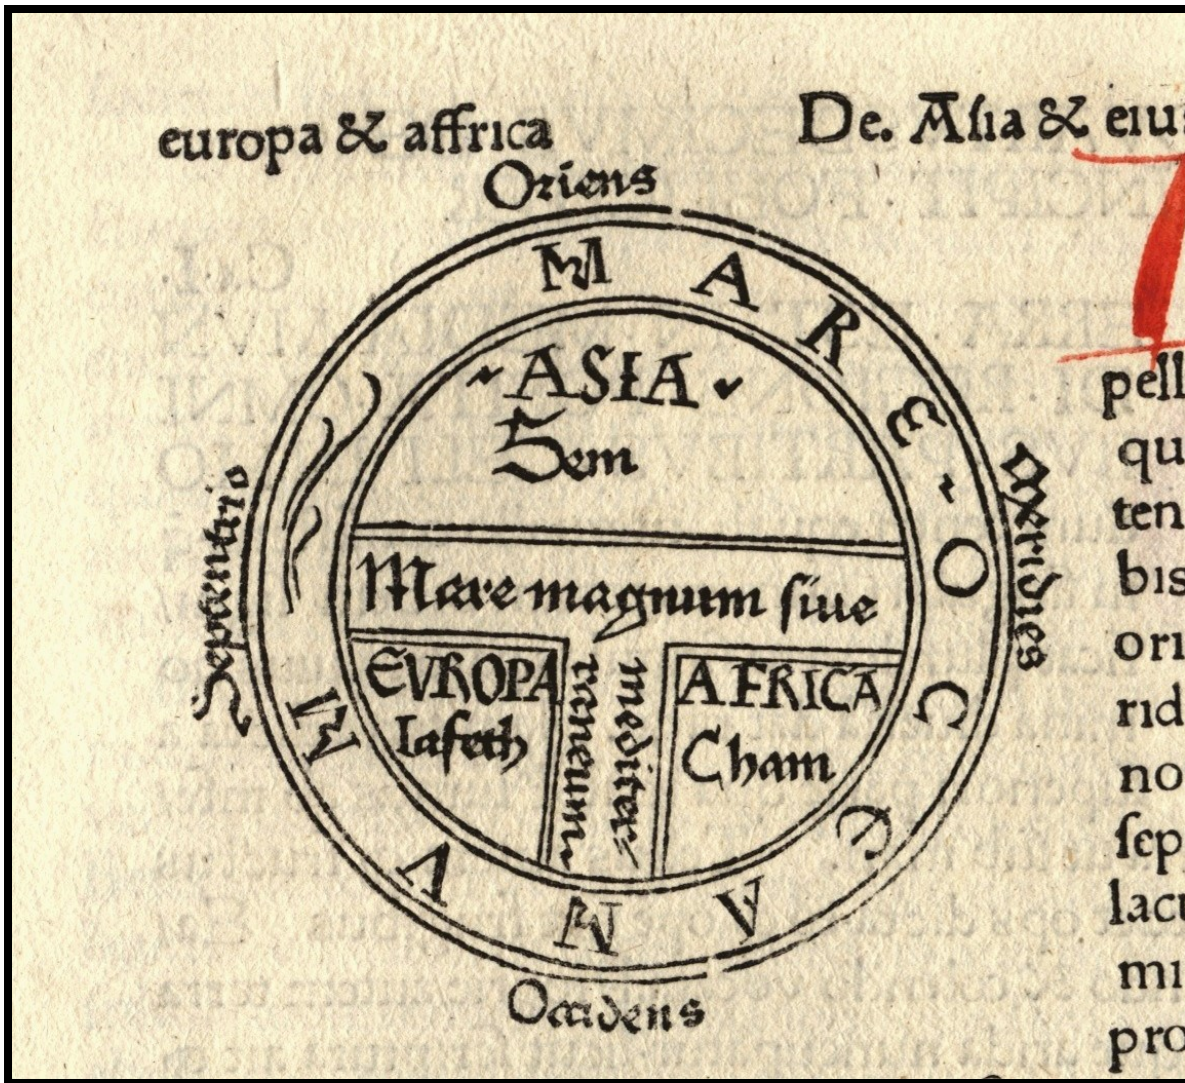 europa & affrica
De. Aſia & eiu
Oriens
MARE OCEANVM
ASIA
Sem
Septentrio
Meridies
Mare magnum ſiue
mediter/
raneum.
EVROPA
Iafeth
AFRICA
Cham
Occidens
pell
qu
ten
bis
ori
rid
no
ſep
lacu
mi
pro